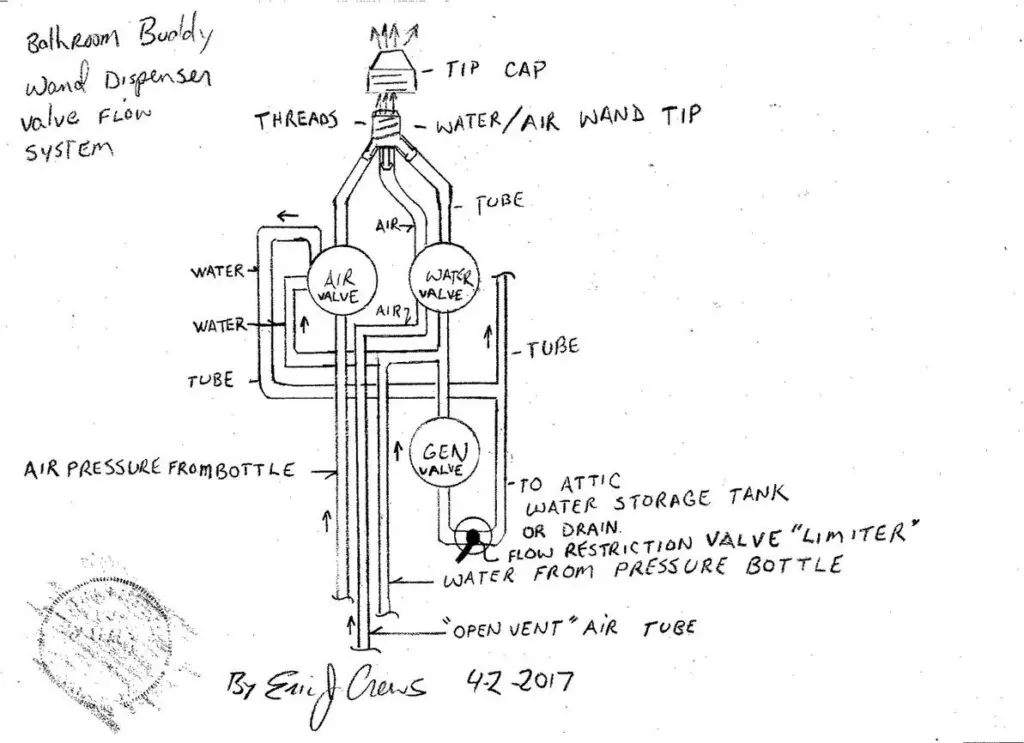 Bathroom Buddy
Wand Dispenser
valve FLOW
SYSTEM
TIP CAP
THREADS
WATER/AIR WAND TIP
TUBE
AIR
WATER
AIR
VALVE
WATER
VALVE
AIR
WATER
TUBE
TUBE
GEN
VALVE
AIR PRESSURE FROM BOTTLE
TO ATTIC
WATER STORAGE TANK
OR DRAIN.
FLOW RESTRICTION VALVE "LIMITER"
WATER FROM PRESSURE BOTTLE
"OPEN VENT" AIR TUBE
By Eric J Crews 4-2-2017